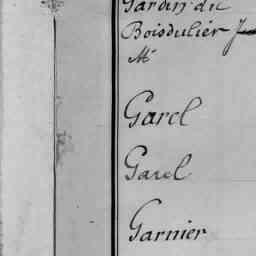 Jardin du
Boisdulier J
Mr
Garel
Garel
Garnier